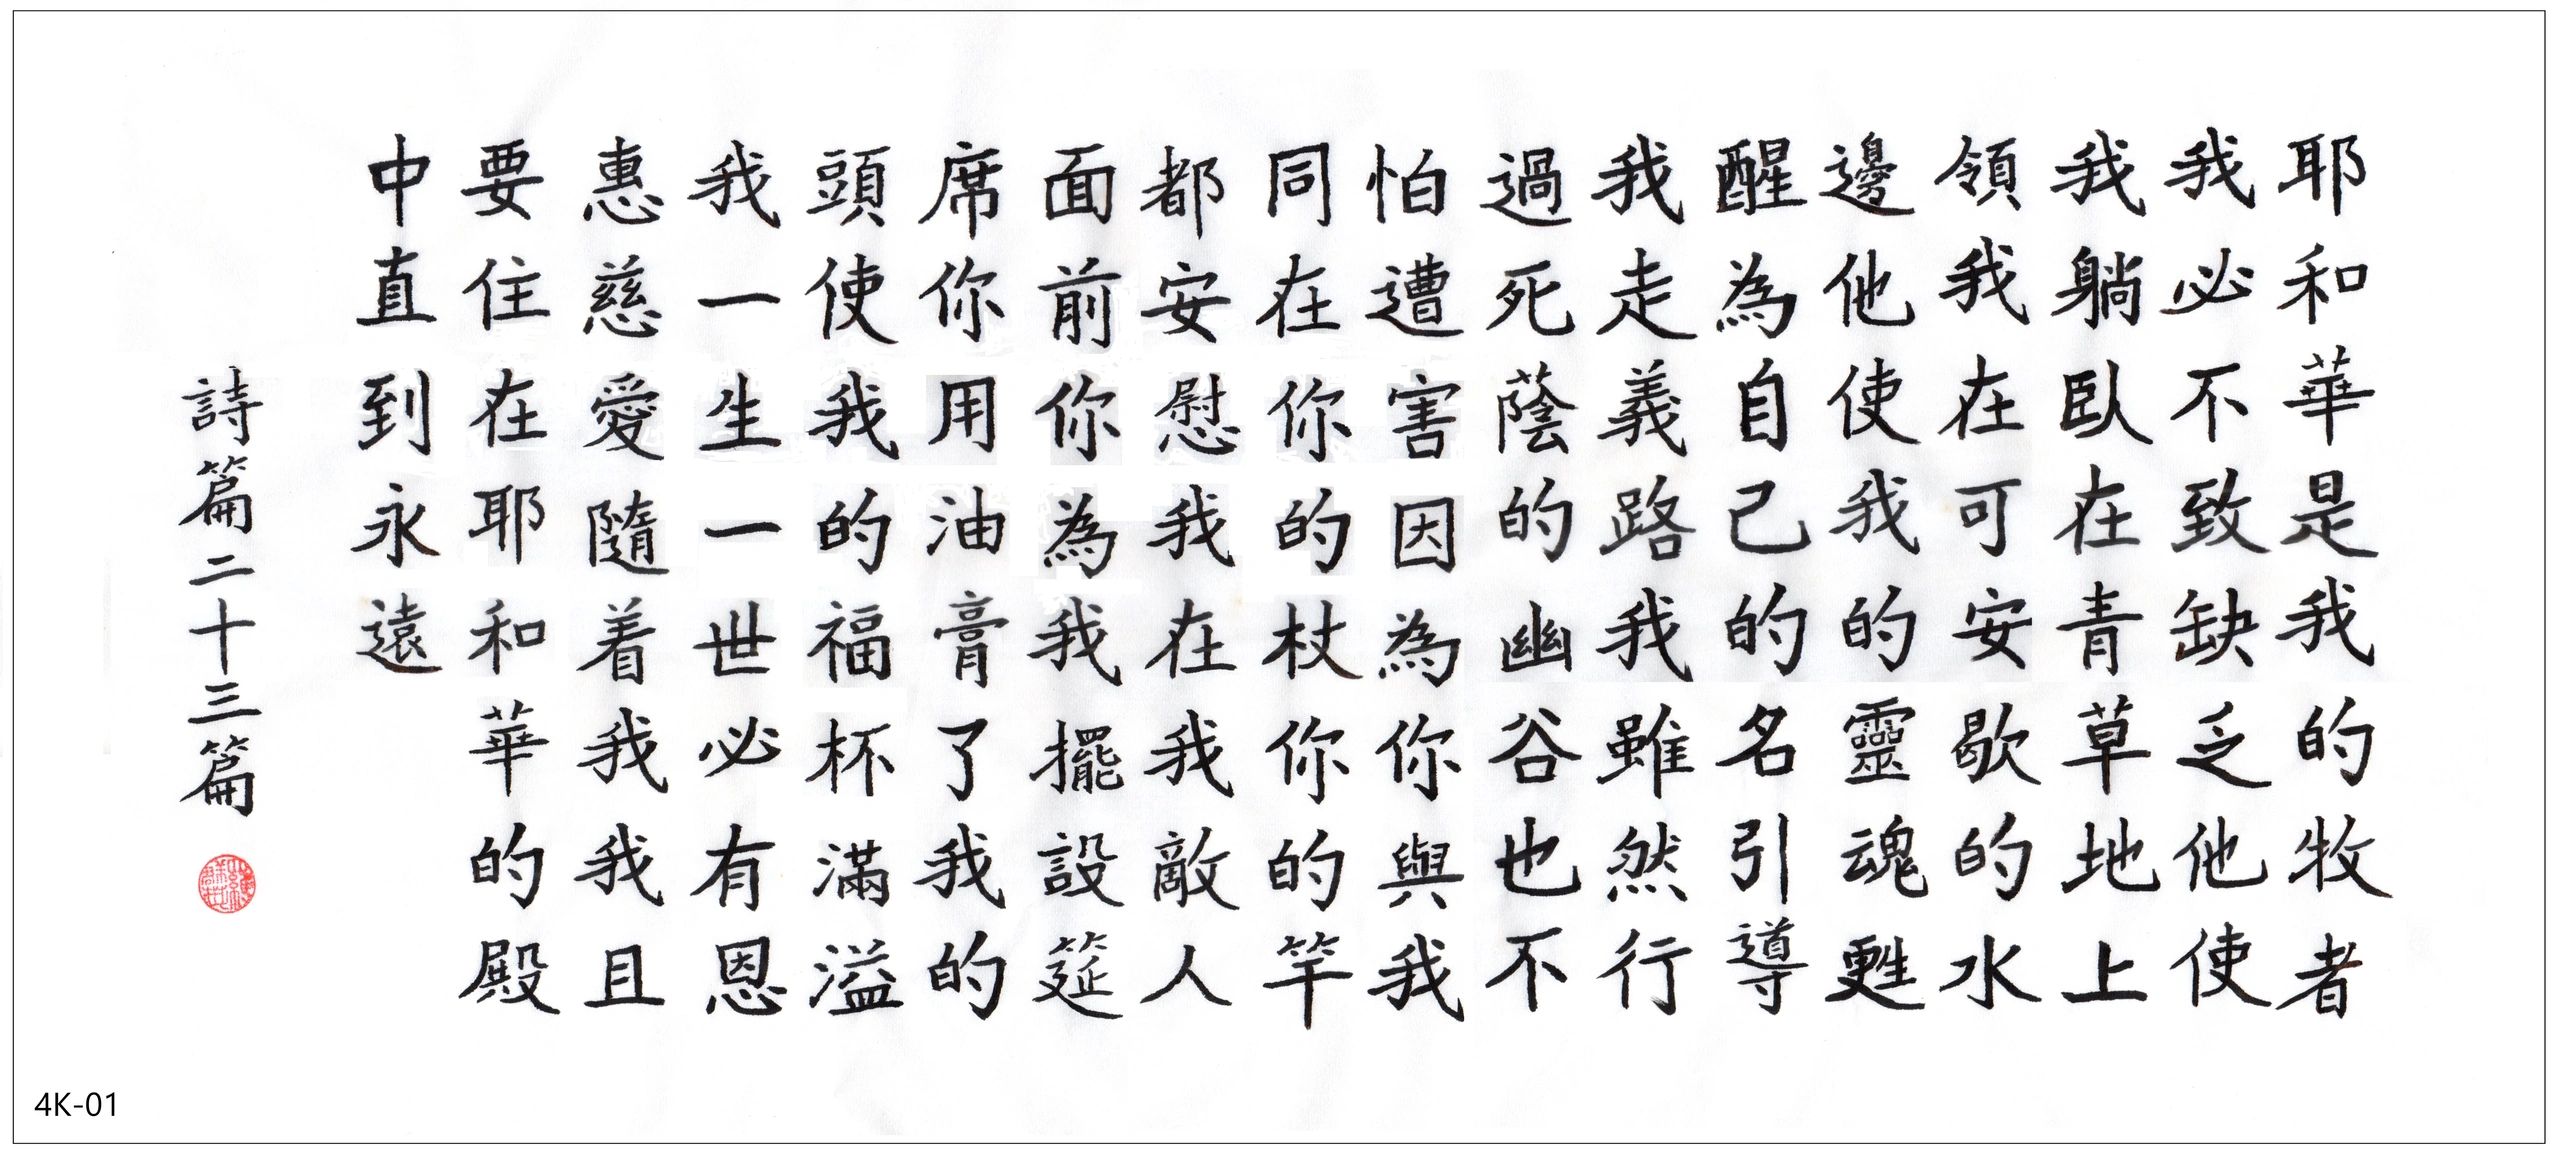 耶和華是我的牧者
我必不致缺乏他使
我躺臥在青草地上
領我在可安歇的水
邊他使我的靈魂甦
醒為自己的名引導
我走義路我雖然行
過死蔭的幽谷也不
怕遭害因為你與我
同在你的杖你的竿
都安慰我在我敵人
面前你為我擺設筵
席你用油膏了我的
頭使我的福杯滿溢
我一生一世必有恩
惠慈愛隨着我我且
要住在耶和華的殿
中直到永遠
詩篇二十三篇
4K-01